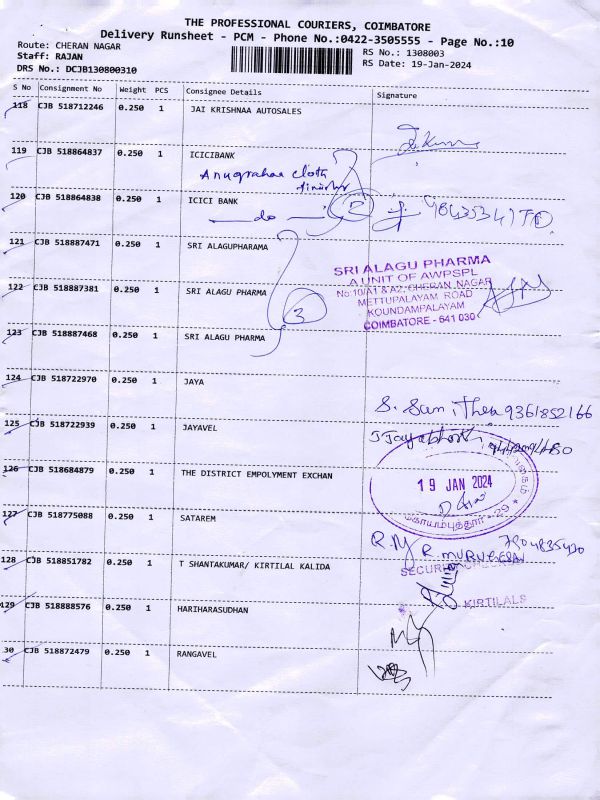 THE PROFESSIONAL COURIERS, COIMBATORE
Delivery Runsheet - PCM - Phone No.:0422-3505555 - Page No.:10
Route: CHERAN NAGAR
RS No.: 1308003
Staff: RAJAN
RS Date: 19-Jan-2024
DRS No.: DCJB130800310
S No Consignment No Weight PCS Consignee Details Signature
118 CJB 518712246 0.250 1 JAI KRISHNAA AUTOSALES
119 CJB 518864837 0.250 1 ICICIBANK
Anugrahaa cloth
120 CJB 518864838 0.250 1 ICICI BANK
do 2
121 CJB 518887471 0.250 1 SRI ALAGUPHARAMA
SRI ALAGU PHARMA
A UNIT OF AWPSPL
No:10/A1 & A2, CHERAN NAGAR
METTUPALAYAM ROAD
KOUNDAMPALAYAM
COIMBATORE - 641 030
122 CJB 518887381 0.250 1 SRI ALAGU PHARMA
3
123 CJB 518887468 0.250 1 SRI ALAGU PHARMA
124 CJB 518722970 0.250 1 JAYA
S. 9361852166
125 CJB 518722939 0.250 1 JAYAVEL
126 CJB 518684879 0.250 1 THE DISTRICT EMPOLYMENT EXCHAN
19 JAN 2024
127 CJB 518775088 0.250 1 SATAREM
R. MURUGESAN
128 CJB 518851782 0.250 1 T SHANTAKUMAR/ KIRTILAL KALIDA
KIRTILALS
129 CJB 518888576 0.250 1 HARIHARASUDHAN
30 CJB 518872479 0.250 1 RANGAVEL